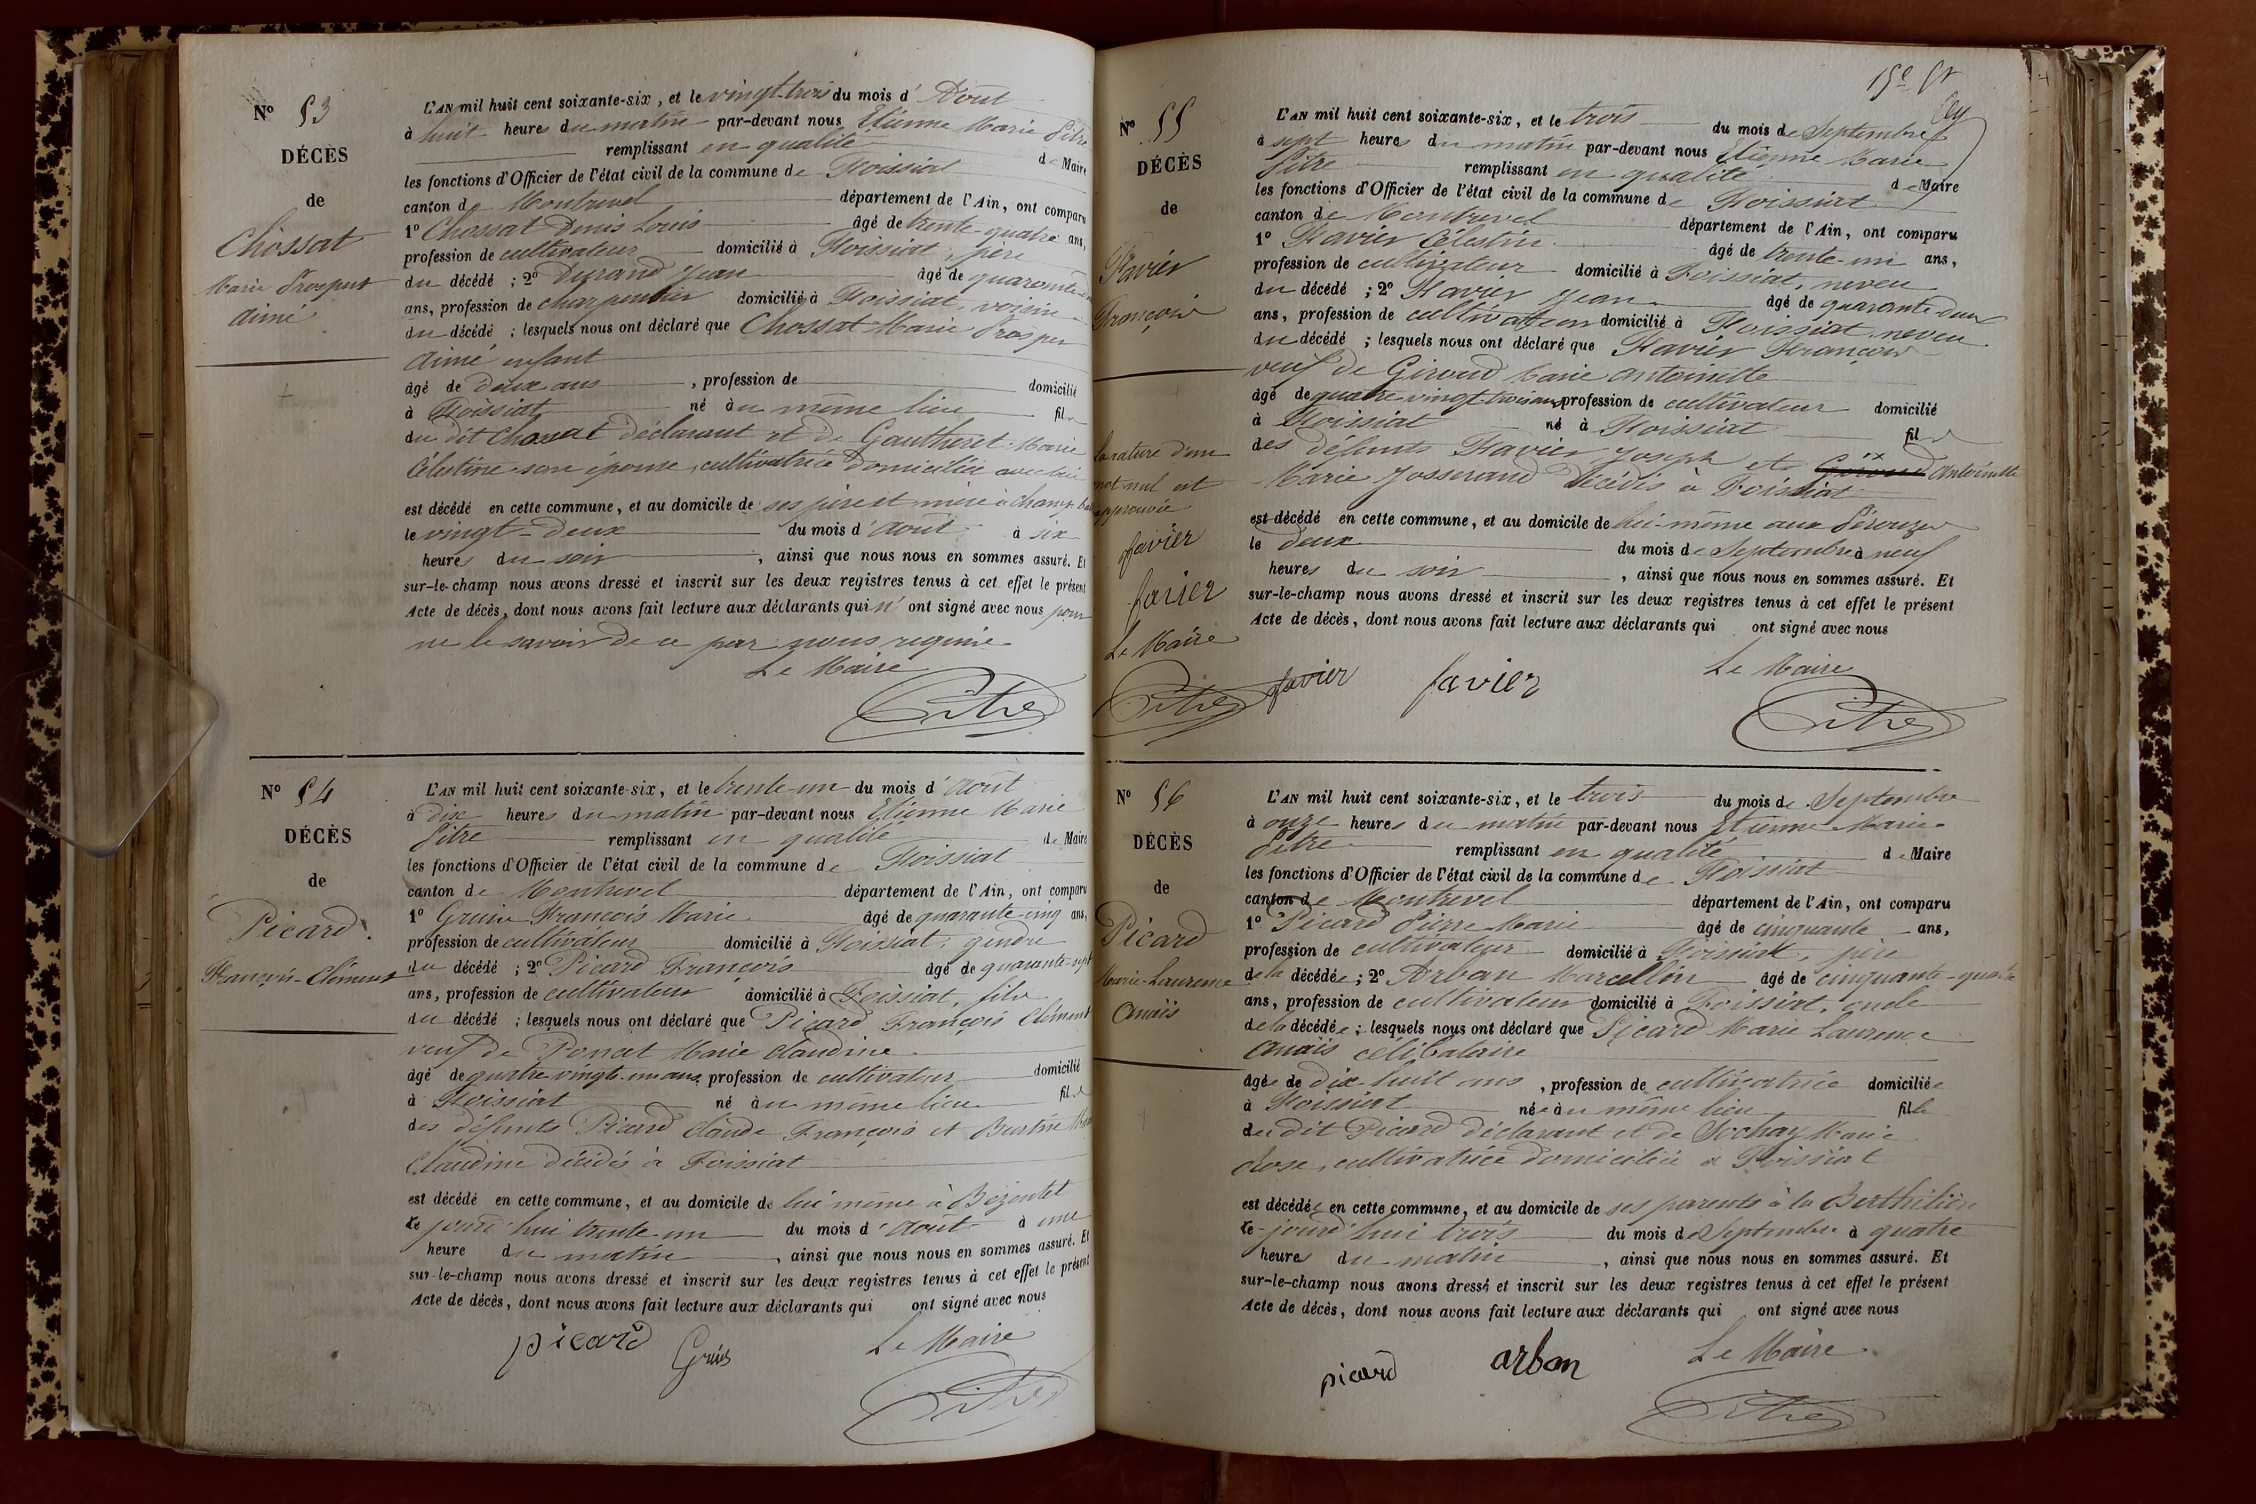 No 53
DÉCÈS
de
Chossat
Marie Prosper
Aimé
L'AN mil huit cent soixante-six, et le vingt-trois du mois d'Août
à huit heures du matin par-devant nous Etienne Marie Pitre
remplissant en qualité de Maire
les fonctions d'Officier de l'état civil de la commune de Foissiat
canton de Montrevel département de l'Ain, ont comparu
1o Chossat Denis Louis âgé de trente-quatre ans,
profession de cultivateur domicilié à Foissiat, père
du décédé ; 2o Durand Jean âgé de quarante
ans, profession de charpentier domicilié à Foissiat, voisin
du décédé ; lesquels nous ont déclaré que Chossat Marie Prosper
Aimé enfant
âgé de deux ans, profession de domicilié
à Foissiat né au même lieu fils
du dit Chossat déclarant et de Gautheret Marie
Célestine son épouse, cultivatrice domiciliée avec lui
est décédé en cette commune, et au domicile de ses père et mère à champ
le vingt-deux du mois d'août à six
heures du soir, ainsi que nous nous en sommes assuré. Et
sur-le-champ nous avons dressé et inscrit sur les deux registres tenus à cet effet le présent
Acte de décès, dont nous avons fait lecture aux déclarants qui n'ont signé avec nous pour
ne le savoir de ce par nous requis
Le Maire
Pitre
No 54
DÉCÈS
de
Picard
François-Clément
L'AN mil huit cent soixante-six, et le trente-un du mois d'août
à dix heures du matin par-devant nous Etienne Marie
Pitre remplissant en qualité de Maire
les fonctions d'Officier de l'état civil de la commune de Foissiat
canton de Montrevel département de l'Ain, ont comparu
1o François Marie âgé de quarante-cinq ans,
profession de cultivateur domicilié à Foissiat, gendre
du décédé ; 2o Picard François âgé de quarante-sept
ans, profession de cultivateur domicilié à Foissiat, fils
du décédé ; lesquels nous ont déclaré que Picard François Clément
veuf de Poncet Marie Claudine
âgé de quatre vingt-un ans, profession de cultivateur domicilié
à Foissiat né au même lieu fils
des défunts Picard Claude François et
Claudine décédés à Foissiat
est décédé en cette commune, et au domicile de lui même à Bezentet
le jourd'hui trente un du mois d'août à une
heure du matin, ainsi que nous nous en sommes assuré. Et
sur-le-champ nous avons dressé et inscrit sur les deux registres tenus à cet effet le présent
Acte de décès, dont nous avons fait lecture aux déclarants qui ont signé avec nous
picard
Le Maire
Pitre
No 55
DÉCÈS
de
Favier
François
La rature d'un
mot nul est
approuvée
favier
favier
Le Maire
Pitre
L'AN mil huit cent soixante-six, et le trois du mois de Septembre
à sept heures du matin par-devant nous Etienne Marie
Pitre remplissant en qualité de Maire
les fonctions d'Officier de l'état civil de la commune de Foissiat
canton de Montrevel département de l'Ain, ont comparu
1o Favier Célestin âgé de trente-un ans,
profession de cultivateur domicilié à Foissiat, neveu
du décédé ; 2o Favier Jean âgé de quarante deux
ans, profession de cultivateur domicilié à Foissiat, neveu
du décédé ; lesquels nous ont déclaré que Favier François
veuf de Giroud Marie Antoinette
âgé de quatre vingt trois ans, profession de cultivateur domicilié
à Foissiat né à Foissiat fils
des défunts Favier Joseph et Antoinette
Marie Josserand décédés à Foissiat
est décédé en cette commune, et au domicile de lui-même aux
le deux du mois de Septembre à neuf
heures du soir, ainsi que nous nous en sommes assuré. Et
sur-le-champ nous avons dressé et inscrit sur les deux registres tenus à cet effet le présent
Acte de décès, dont nous avons fait lecture aux déclarants qui ont signé avec nous
favier favier
Le Maire
Pitre
No 56
DÉCÈS
de
Picard
Marie-Laurence
Anaïs
L'AN mil huit cent soixante-six, et le trois du mois de Septembre
à onze heures du matin par-devant nous Etienne Marie
Pitre remplissant en qualité de Maire
les fonctions d'Officier de l'état civil de la commune de Foissiat
canton de Montrevel département de l'Ain, ont comparu
1o Picard Pierre Marie âgé de cinquante ans,
profession de cultivateur domicilié à Foissiat, père
de la décédée ; 2o Arban Marcellin âgé de cinquante-quatre
ans, profession de cultivateur domicilié à Foissiat, oncle
de la décédée ; lesquels nous ont déclaré que Picard Marie Laurence
Anaïs célibataire
âgée de dix-huit ans, profession de cultivatrice domiciliée
à Foissiat née au même lieu fille
du dit Picard déclarant et de Sochay Marie
cultivatrice domiciliée à Foissiat
est décédée en cette commune, et au domicile de ses parents à la
le jourd'hui trois du mois de Septembre à quatre
heures du matin, ainsi que nous nous en sommes assuré. Et
sur-le-champ nous avons dressé et inscrit sur les deux registres tenus à cet effet le présent
Acte de décès, dont nous avons fait lecture aux déclarants qui ont signé avec nous
picard arban
Le Maire
Pitre